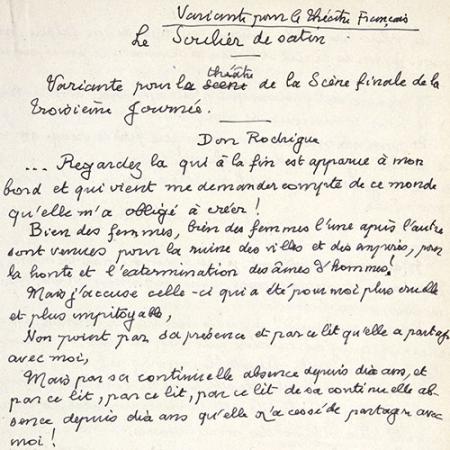 Variante pour le théâtre Français
Le Soulier de satin
Variante pour la scene théâtre de la Scène finale de la
troisième journée.
Don Rodrigue
... Regardez la qui à la fin est apparue à mon
bord et qui vient me demander compte de ce monde
qu'elle m'a obligé à créer !
Bien des femmes, bien des femmes l'une après l'autre
sont venues pour la ruine des villes et des empires, pour
la honte et l'extermination des âmes d'hommes !
Mais j'accuse celle-ci qui a été pour moi plus cruelle
et plus impitoyable,
Non point par sa présence et par ce lit qu'elle a partagé
avec moi,
Mais par sa continuelle absence depuis dix ans, et
par ce lit, par ce lit, par ce lit de sa continuelle ab-
sence depuis dix ans qu'elle n'a cessé de partager avec
moi !